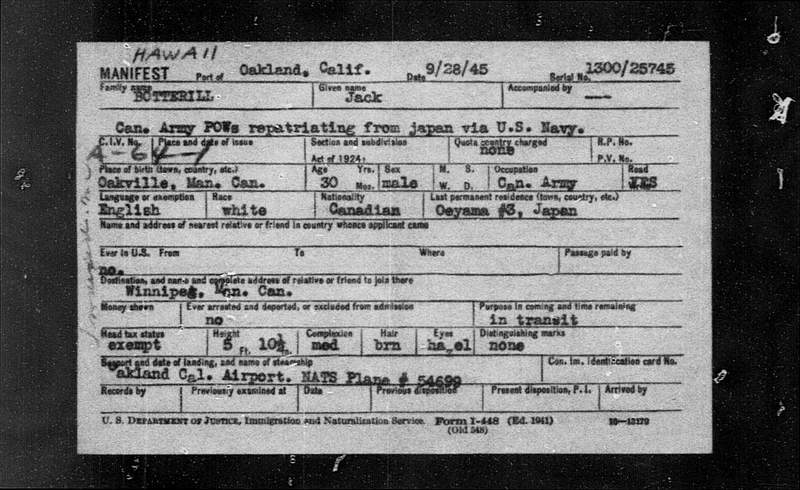 HAWAII
MANIFEST Port of Oakland, Calif. Date 9/28/45 Serial No. 1300/25745
Family name Given name Accompanied by
BOTTERILL Jack ---
Can. Army POWs repatriating from japan via U.S. Navy.
C.I.V. No. Place and date of issue Section and subdivision Quota country charged R.P. No.
none
A-64-1 Act of 1924: P.V. No.
Place of birth (town, country, etc.) Age Yrs. Sex M. S. Occupation Read
Oakville, Man. Can. 30 Mos. male W. D. Can. Army YES
Language or exemption Race Nationality Last permanent residence (town, country, etc.)
English white Canadian Oeyama #3, Japan
Name and address of nearest relative or friend in country whence applicant came
Ever in U.S. From To Where Passage paid by
no.
Destination, and name and complete address of relative or friend to join there
Winnipeg, Man. Can.
Money shown Ever arrested and deported, or excluded from admission Purpose in coming and time remaining
no in transit
Head tax status Height Complexion Hair Eyes Distinguishing marks
exempt 5 Ft. 10½ In. med brn hazel none
Seaport and date of landing, and name of steamship Con. Im. Identification card No.
Oakland Cal. Airport. NATS Plane # 54699
Records by Previously examined at Date Previous disposition Present disposition, P.I. Arrived by
U. S. DEPARTMENT OF JUSTICE, Immigration and Naturalization Service. Form I-448 (Ed. 1941) 10—13179
(Old 548)